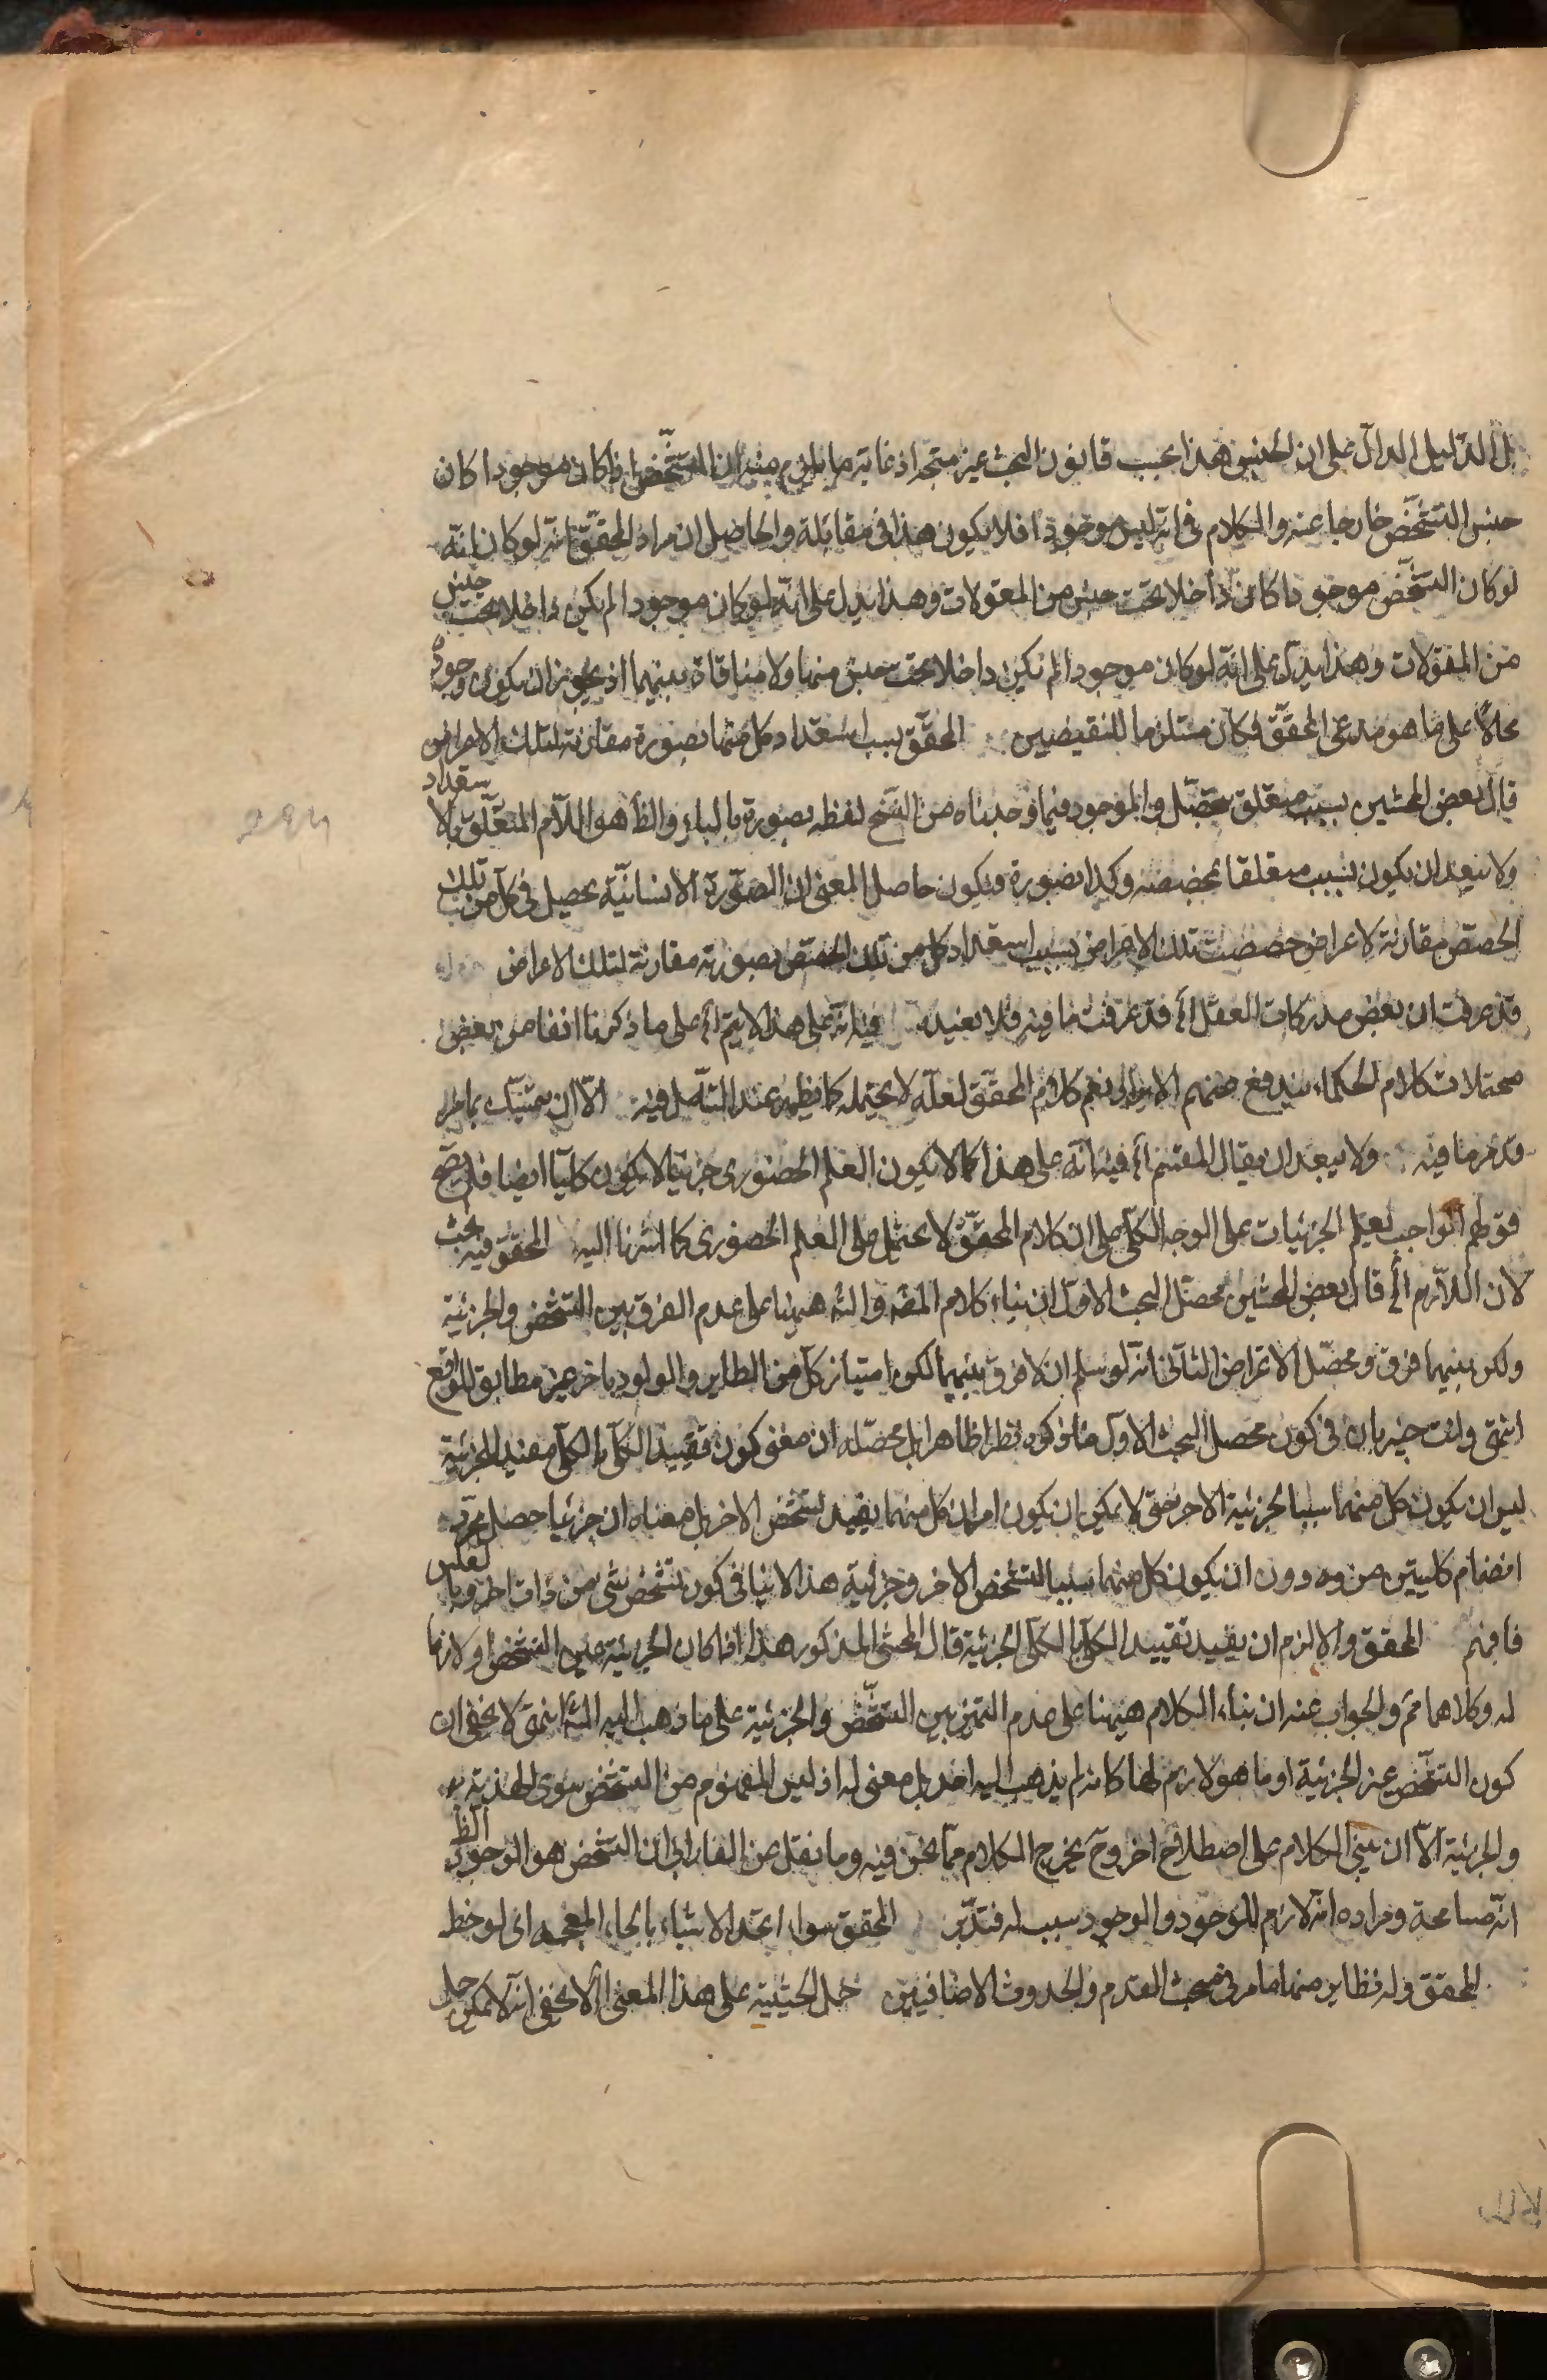 بل الدليل الدال على ان لحنس هذا بحسب قانون البحث غير متجه اذ غاية ما يلزم منه ان التشخص اذا كان موجودا كان
جنس التشخص خارجا عنه والكلام فى انه ليس موجودا فلا يكون هذا فى مقابلة والحاصل ان مراد المحقق انه لو كان انه
لو كان التشخص موجودا كان داخلا تحت جنس من المقولات وهذا يدل على انه لو كان موجودا لم يكن داخلا تحت جنس
من المقولات وهذا يدل على انه لو كان موجودا لم يكن داخلا تحت جنس منها ولا منافاة بينهما اذ يجوز ان يكون وجوده
محالا على ما هو مدعى المحقق فكان مستلزما للنقيضين المحقق بسبب استعداد كل منها بصورة مقارنة لتلك الاعراض
قال بعض المحشين بسبب متعلق بتحصل والموجود فيما وجدناه من النسخ لفظه بصورة بالباء والظاهر هو اللام المتعلق بالاستعداد
ولا يبعد ان يكون بسبب متعلقا بخصصته وكذا بصورة ويكون حاصل المعنى ان الصورة الانسانية يحصل فى كل من تلك
الحصص مقارنة لاعراض خصصت تلك الاعراض بسبب استعداد كل من تلك الحصص بصورته مقارنة لتلك الاعراض
قد عرفت ان بعض مدركات العقل الخ قد عرفت ما فيه فلا نعيده فيه انه على هذا لا يتم الخ على ما ذكرنا انفا من بعض
محتملات كلام الحكماء يندفع عنهم الايراد نعم كلام المحقق لعله لا يحتمله كما يظهر عند التأمل فيه الا ان يتمسك بما مر
قد مر ما فيه ولا يبعد ان يقال المقسم الخ فيه انه على هذا كما لا يكون العلم الحضورى جزئيا لا يكون كليا ايضا فلا يصح
قولهم الواجب يعلم الجزئيات على الوجه الكلى على ان كلام المحقق لا يحتمل على العلم الحضورى كما اشرنا اليه المحقق فيه بحث
لان اللازم الخ قال بعض المحشين محصل البحث الاول ان بناء كلام المصه والشه ههنا على عدم الفرق بين التشخص والجزئية
ولكن بينهما فرق ومحصل الاعتراض الثانى انه لو سلم ان لا فرق بينهما لكن امتياز كل من الطاير والولود باخر غير مطابق للواقع
انتهى وانت خبير بان فى كون محصل البحث الاول ما ذكره نظرا ظاهرا بل محصله ان معنى كون تقييد الكلى بالكلى مفيد الجزئية
ليس ان يكون كل منهما سببا لجزئية الاخر حتى لا يمكن ان يكون امران كل منهما يفيد تشخص الاخر بل معناه ان جزئيا حصل بمجرد
انضمام كليتين من وه دون ان يكون كل منهما سببا لتشخص الاخر وجزئية هذا لا ينافى كون تشخص شى من ذات اخر وبا لعكس
فافهم المحقق والا لزم ان يفيد تقييد الكلى بالكلى الجزئية قال المحشى المذكور هذا اذا كان الجزئية عين التشخص او لازما
له وكلاهما مم والجواب عنه ان بناء الكلام ههنا على عدم التميز بين التشخص والجزئية على ما ذهب اليه الشه انتهى لا يخفى ان
كون التشخص عين الجزئية او ما هو لازم لها كانه لم يذهب اليه احد بل معنى له اذ ليس المفهوم من التشخص سوى الهذية
والجزئية الا ان يبنى الكلام على اصطلاح اخر وح يخرج الكلام مما نحن فيه وما نقل عن الفارابى ان التشخص هو الوجود الظ
انه مسامحة ومراده انه لازم للوجود والوجود سبب له فتدبر المحقق سواء اتحد الاشياء بالحاء المعجمه اى لوحظ
المحقق وله نظاير منها ما مر فى مبحث القدم والحدوث الاضافيين حمل الحيثية على هذا المعنى الخ لا يخفى انه لا يمكن حمل